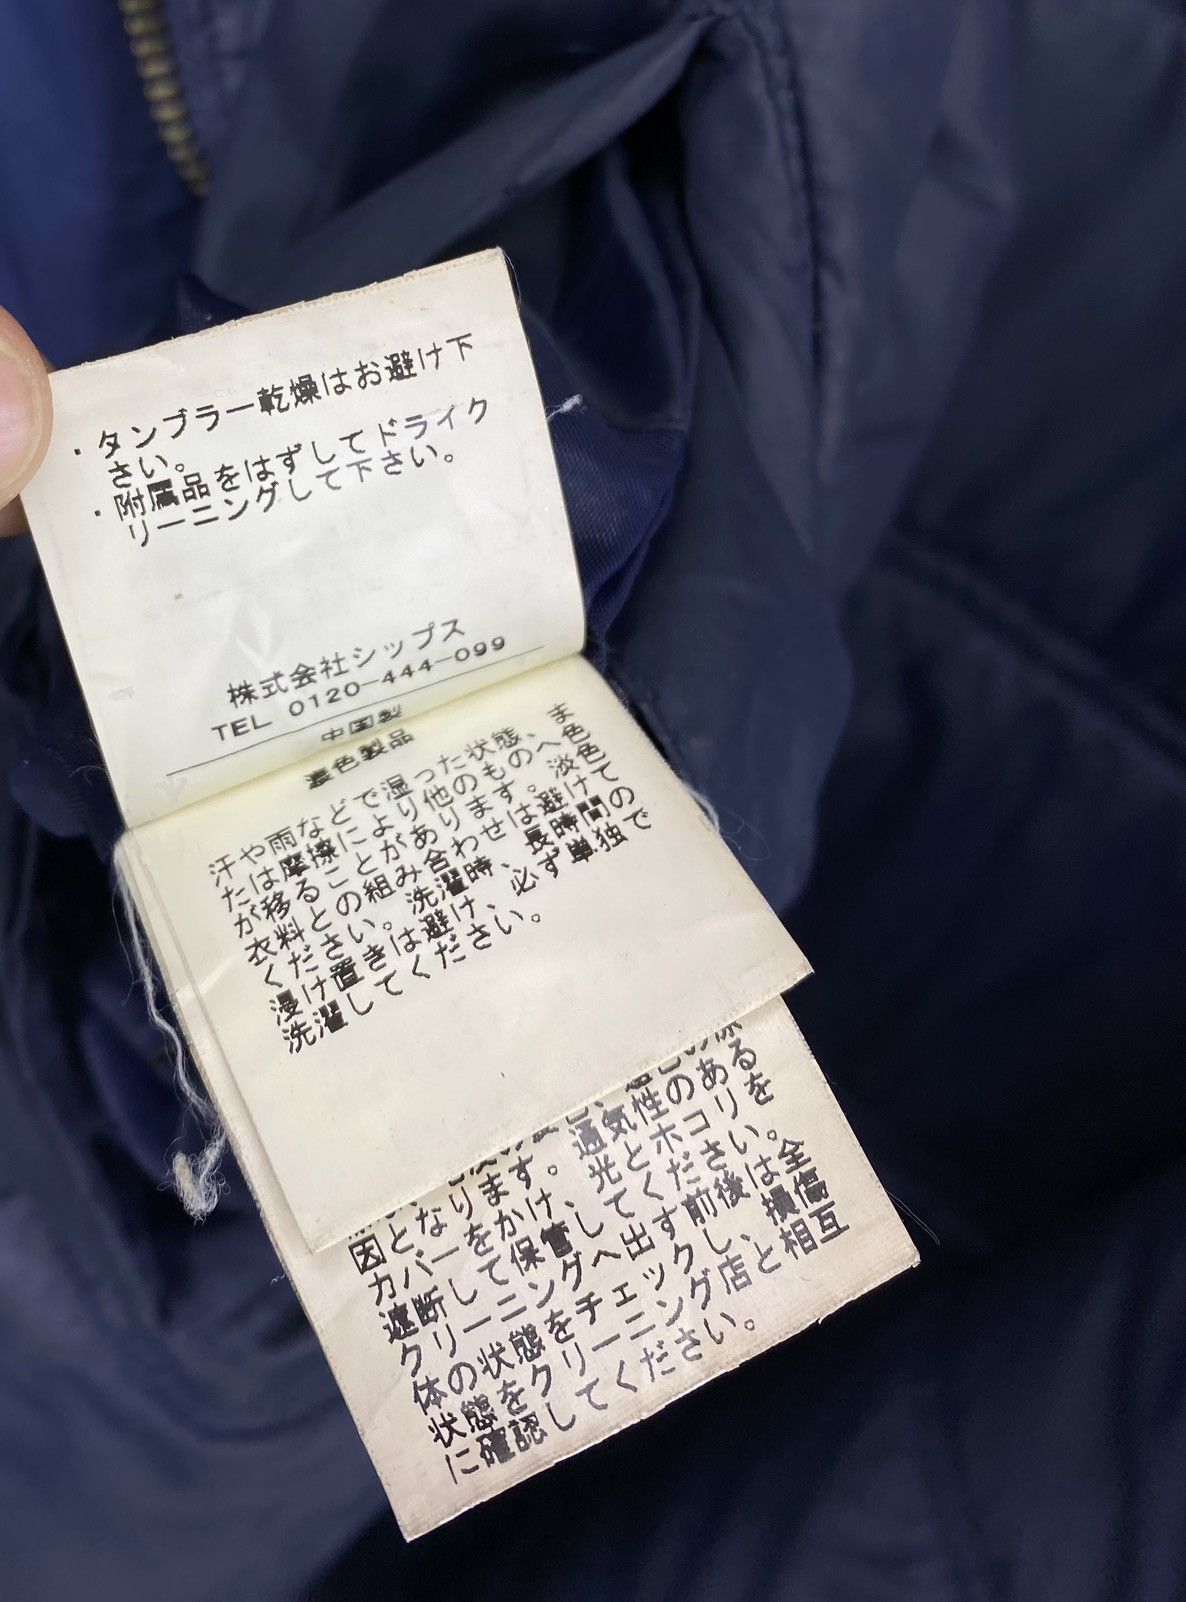 ・タンブラー乾燥はお避け下
さい。
・附属品をはずしてドライク
リーニングして下さい。
株式会社シップス
TEL 0120-444-099
中国製
濃色製品
汗や雨などで湿った状態、ま
たは摩擦により他のものへ色
が移ることがあります。淡色
衣料との組み合わせは避けて
ください。洗濯時、長時間の
浸け置きは避け、必ず単独で
洗濯してください。
通気性のある
因となります。光とホコリを
カバーをかけ、
遮断して保管してください。
クリーニングへ出す前後は全
体の状態をチェックし、損傷
状態をクリーニング店と相互
に確認してください。